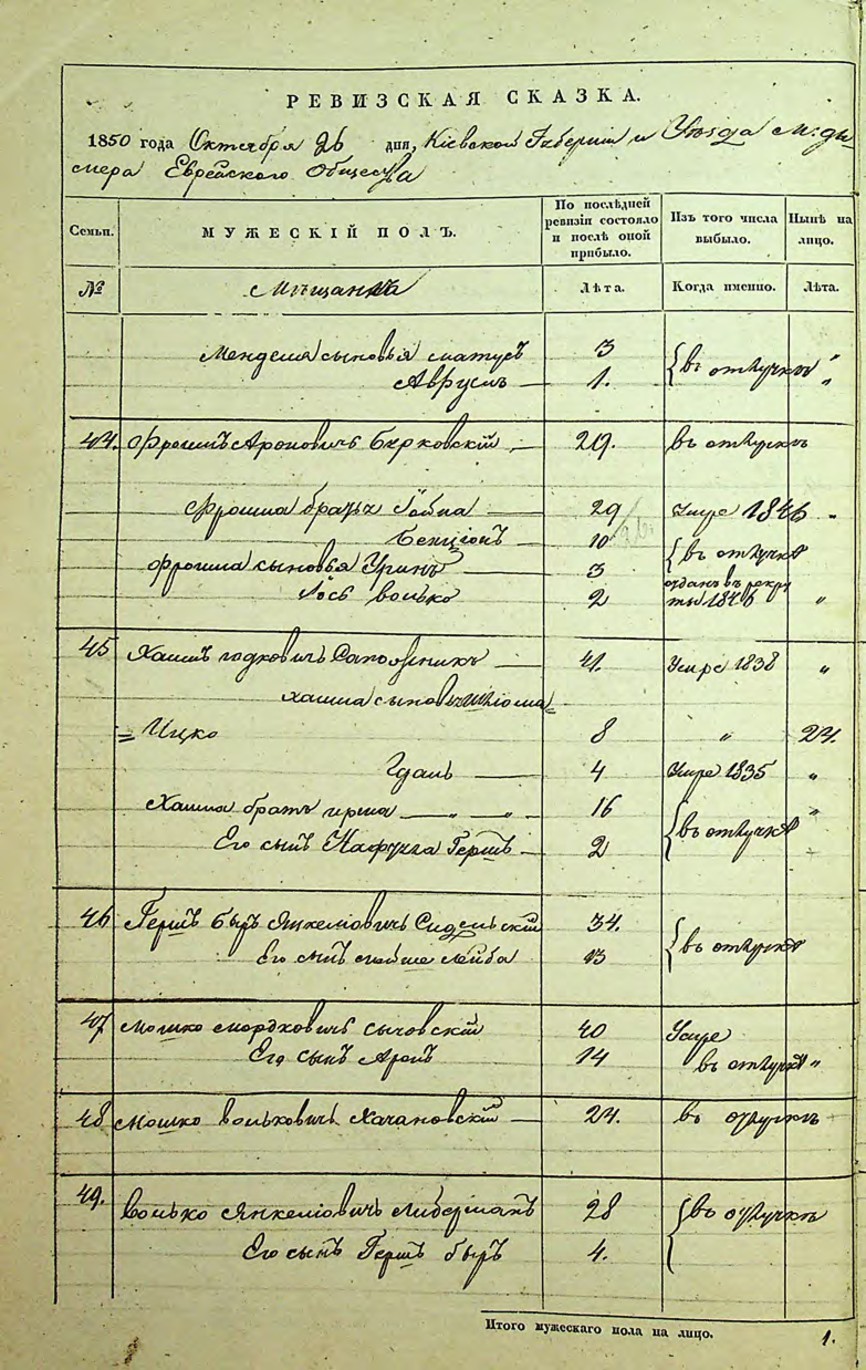 РЕВИЗСКАЯ СКАЗКА.
1850 года Октября 26 дня, Кіевской Губерніи и Уѣзда м: ды-
мера Еврейского Общества
Семьи. МУЖЕСКІЙ ПОЛЪ. По послѣдней ревизіи состояло и послѣ оной прибыло. Изъ того числа выбыло. Нынѣ на лицо.
№ Мѣщанъ Лѣта. Когда именно. Лѣта.
Менделя сыновья Матусъ 3
Аврумъ 1. въ отлучкѣ "
44. Фроимъ Ароновичъ Бирковскій 29. въ отлучкѣ
Фроима братья Іойна 29 Умре 1846 "
Бенціонъ 10
въ отлучкѣ
Фроима сыновья 3
Іось Волько 2 отданъ въ рекруты 1846 "
45 Хаимъ Сапожникъ 41. Умре 1838 "
Хаима сыновья Шлома=
=Ицко 8 " 24.
4 Умре 1835 "
Хаима братъ 16 "
въ отлучкѣ
Его сынъ Гершъ 2
46 Гершъ Беръ Янкеліовичъ 34.
въ отлучкѣ
Его сынъ Мойше Лейба 13
47 Мошко Мордковичъ Сычовскій 40 Умре
Его сынъ Аронъ 14 въ отлучкѣ "
48 Мошко Вольковичъ Хачановскій 24. въ отлучкѣ
49. Волько Янкеліовичъ Либерманъ 28 въ отлучкѣ
Его сынъ Гершъ Беръ 4.
Итого мужескаго пола на лицо. 1.